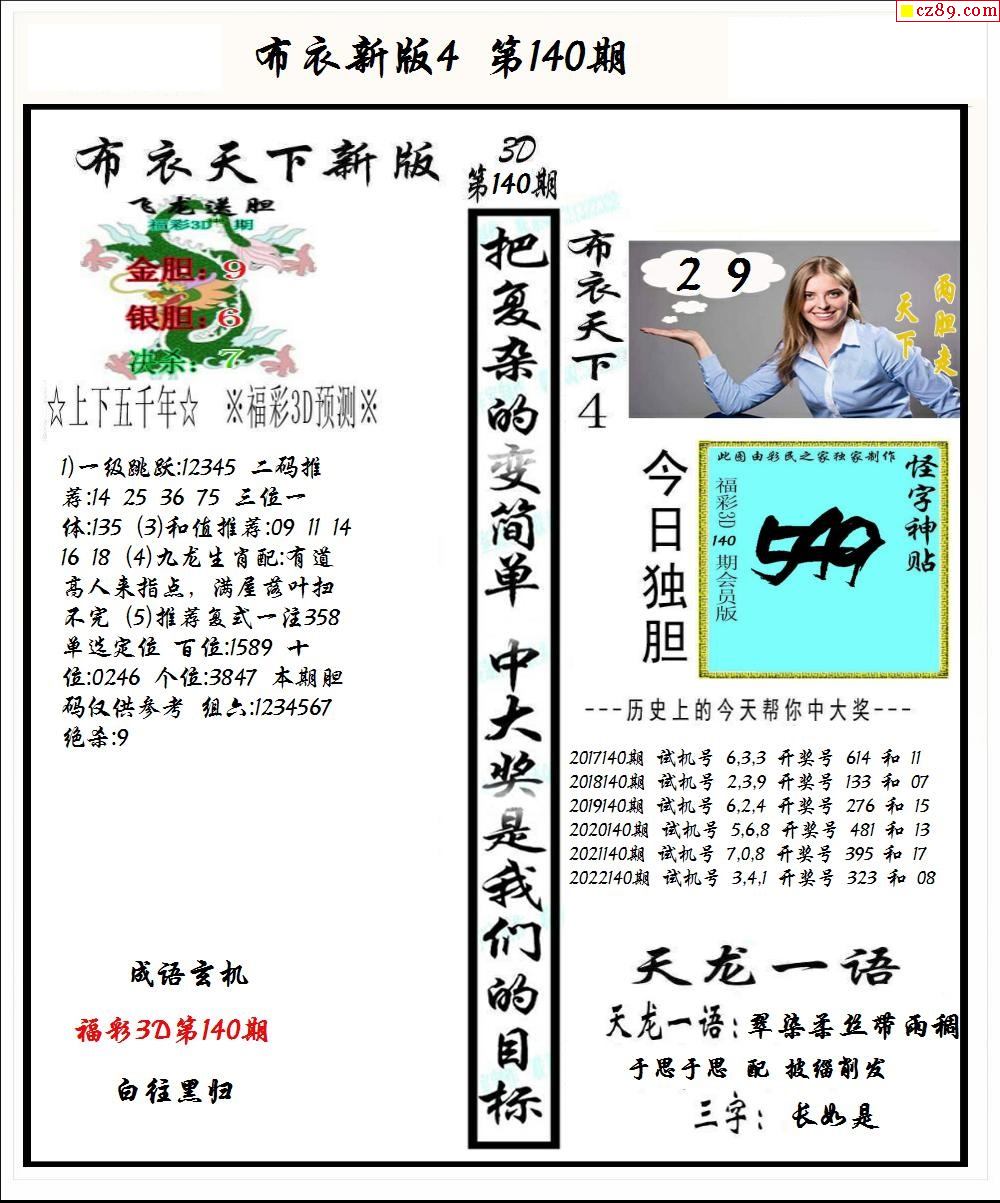 cz89.com
布衣新版4 第140期
布衣天下新版
飞龙送胆
福彩3D 期
金胆：9
银胆：6
决杀：7
☆上下五千年☆ ※福彩3D预测※
1)一级跳跃:12345 二码推
荐:14 25 36 75 三位一
体:135 (3)和值推荐:09 11 14
16 18 (4)九龙生肖配:有道
高人来指点，满屋落叶扫
不完 (5)推荐复式一注358
单选定位 百位:1589 十
位:0246 个位:3847 本期胆
码仅供参考 组六:1234567
绝杀:9
成语玄机
福彩3D第140期
白往黑归
3D
第140期
把复杂的变简单 中大奖是我们的目标
布衣天下4
2 9
两胆走
天下
今日独胆
此图由彩民之家独家制作
怪字神贴
福彩3D 140 期会员版
549
---历史上的今天帮你中大奖---
2017140期 试机号 6,3,3 开奖号 614 和 11
2018140期 试机号 2,3,9 开奖号 133 和 07
2019140期 试机号 6,2,4 开奖号 276 和 15
2020140期 试机号 5,6,8 开奖号 481 和 13
2021140期 试机号 7,0,8 开奖号 395 和 17
2022140期 试机号 3,4,1 开奖号 323 和 08
天龙一语
天龙一语：翠染柔丝带雨稠
于思于思 配 披缁削发
三字： 长如是